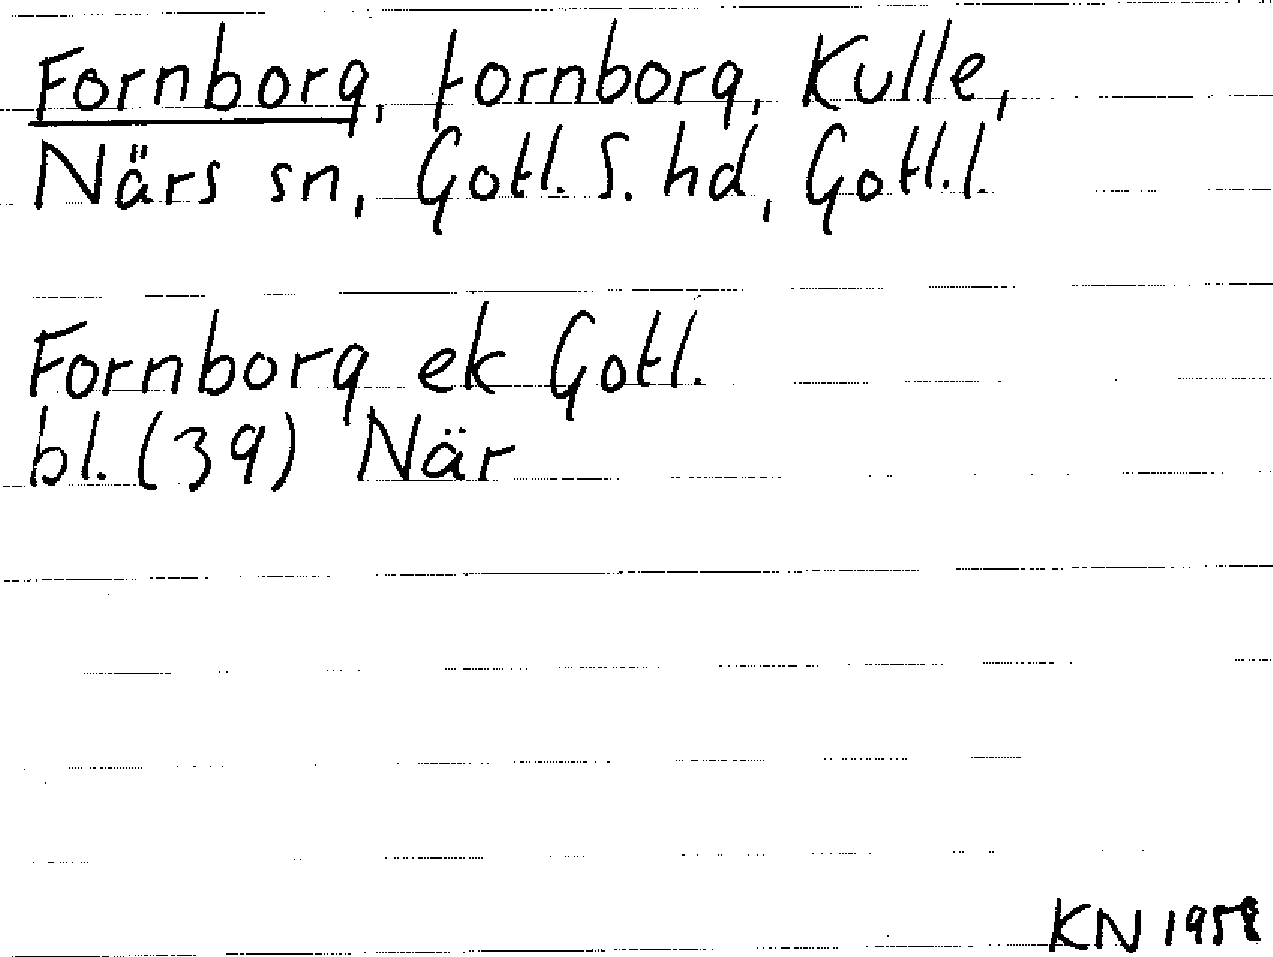 Fornborg, fornborg, Kulle,
Närs sn, Gotl. S. hd, Gotl.l.
Fornborg ek Gotl.
bl. (39) När
KN 1958